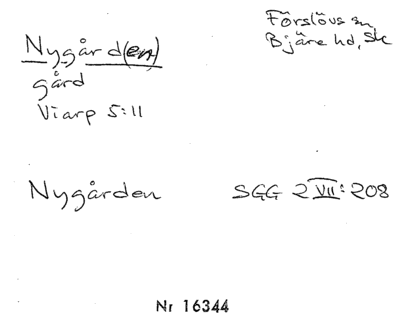 Nygård(en)
Förslövs sn,
Bjäre hd, Sk
gård
Viarp 5:11
Nygården SGG 2 VII: 208
Nr 16344